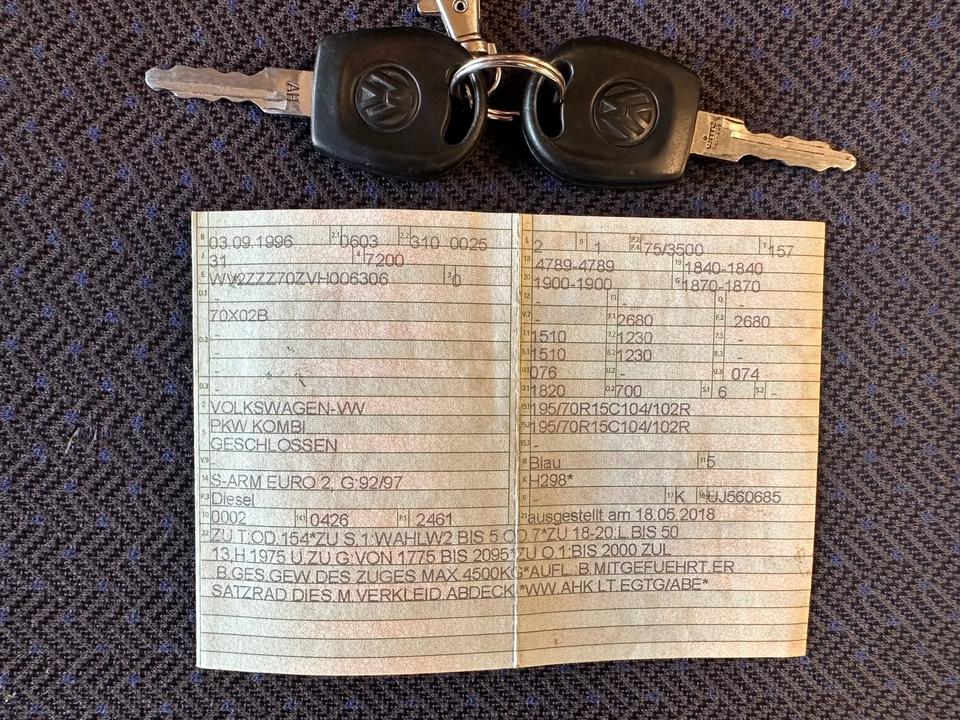 AH
B 03.09.1996 2.1 0603 2.2 310 0025
J 31 4 7200
E WV2ZZZ70ZVH006306 3 0
D.1 -
70X02B
D.2 -
-
-
D.3 -
2 VOLKSWAGEN-VW
5 PKW KOMBI
GESCHLOSSEN
V.9 -
14 S-ARM EURO 2, G:92/97
P.3 Diesel
10 0002 14.1 0426 P.1 2461
22 ZU T:OD.154*ZU S.1:WAHLW2 BIS 5 OD.7*ZU 18-20:L.BIS 50
13,H.1975 U.ZU G:VON 1775 BIS 2095*ZU O.1:BIS 2000 ZUL
.B.GES.GEW DES ZUGES MAX.4500KG*AUFL.:B.MITGEFUEHRT.ER
SATZRAD DIES.M.VERKLEID.ABDECK.*WW.AHK LT.EGTG/ABE*
L 2 9 1 P.2 P.4 75/3500 T 157
18 4789-4789 19 1840-1840
20 1900-1900 G 1870-1870
12 - 13 - Q -
V.7 - F.1 2680 F.2 2680
7.1 1510 7.2 1230 7.3 -
8.1 1510 8.2 1230 8.3 -
U.1 076 U.2 - U.3 074
O.1 1820 O.2 700 S.1 6 S.2 -
15.1 195/70R15C104/102R
15.2 195/70R15C104/102R
15.3 -
R Blau 11 5
K H298*
6 - 17 K 16 UJ560685
21 ausgestellt am 18.05.2018